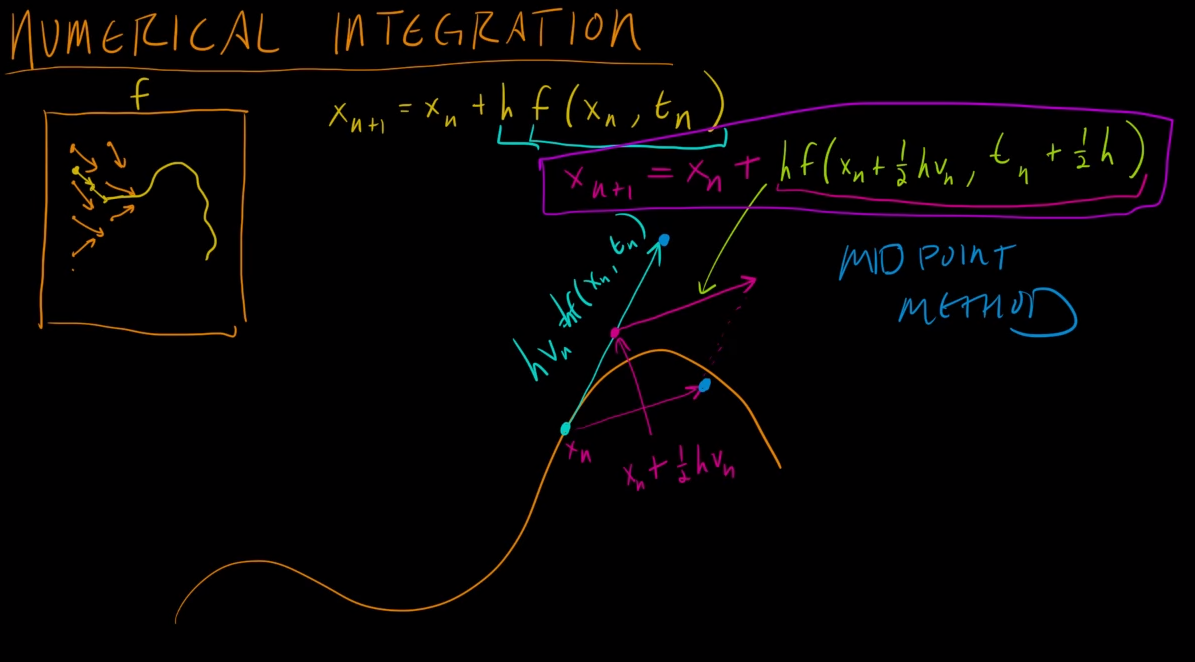 NUMERICAL INTEGRATION
f
xₙ₊₁ = xₙ + h f(xₙ, tₙ)
xₙ₊₁ = xₙ + hf(xₙ + ½hvₙ, tₙ + ½h)
MIDPOINT
METHOD
hvₙ = hf(xₙ, tₙ)
xₙ
xₙ + ½hvₙ